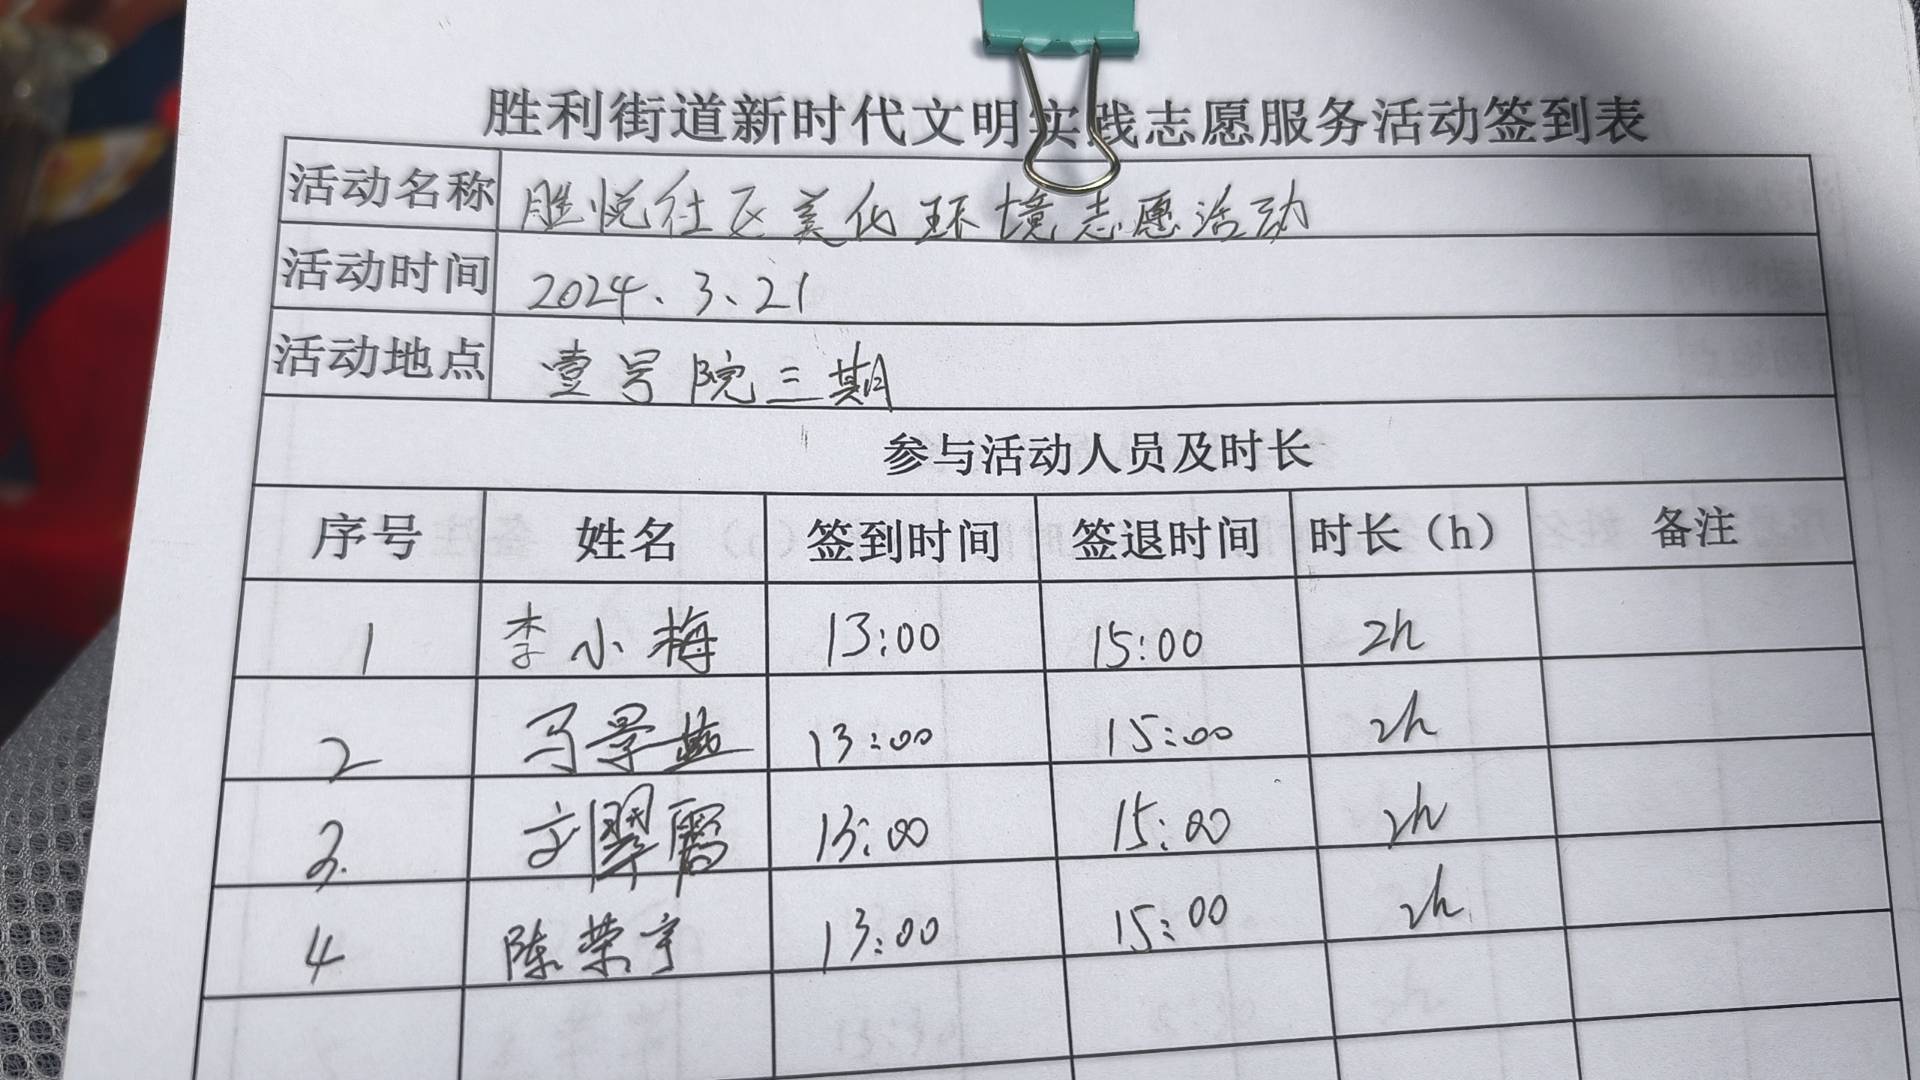 胜利街道新时代文明实践志愿服务活动签到表
活动名称 胜悦社区美化环境志愿活动
活动时间 2024、3、21
活动地点 壹号院三期
参与活动人员及时长
序号 姓名 签到时间 签退时间 时长（h） 备注
1 李小梅 13:00 15:00 2h
2 马景燕 13:00 15:00 2h
3. 文翠霞 13:00 15:00 2h
4 陈荣宇 13:00 15:00 2h